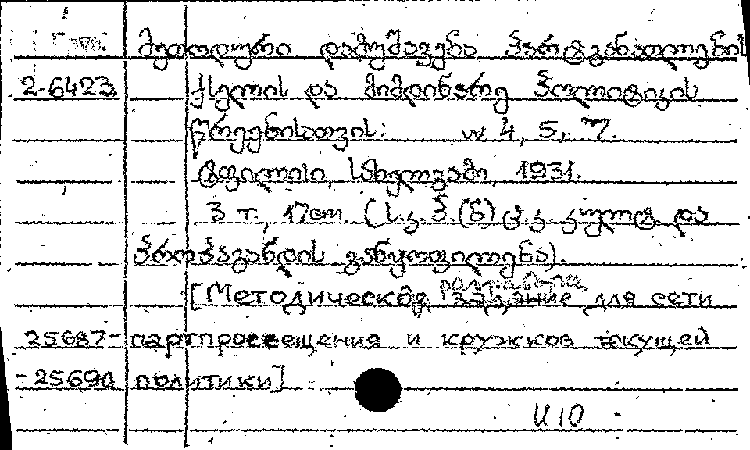 მეთოდური დამუშავება პარტგანათლების
2-6423 ქსელის და მიმდინარე პოლიტიკის
წრეებისათვის: № 4, 5, 7.
ტფილისი, სახელგამი, 1931.
3 т., 17 cm. (ს.კ.პ.(ბ) ც.კ. კულტ და
პროპაგანდის განყოფილება).
разработка
[Методическое задание для сети
25687- партпросвещения и кружков текущей
-25690 политики]
И 10